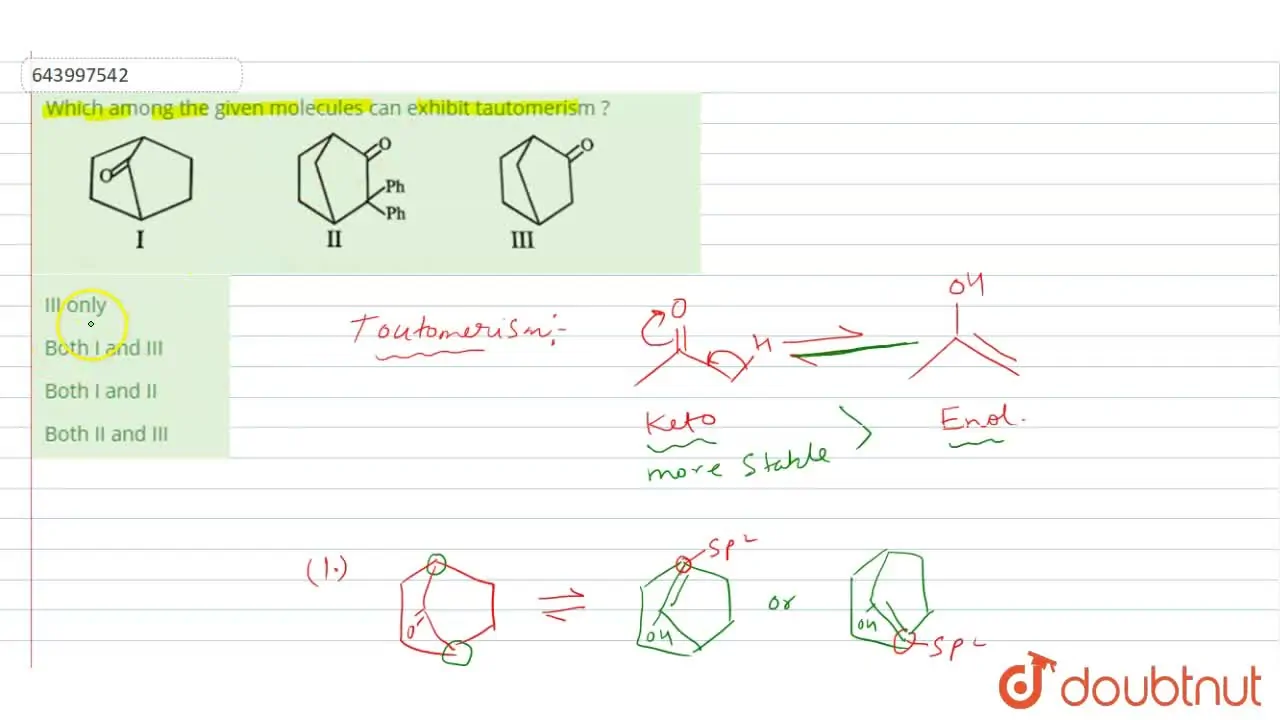 643997542
Which among the given molecules can exhibit tautomerism ?
O
O
Ph
Ph
O
I
II
III
III only
Both I and III
Both I and II
Both II and III
Toutomerism:-
O
H
OH
Keto
more Stable
>
Enol.
(1.)
O
OH
Sp2
or
OH
Sp2
doubtnut